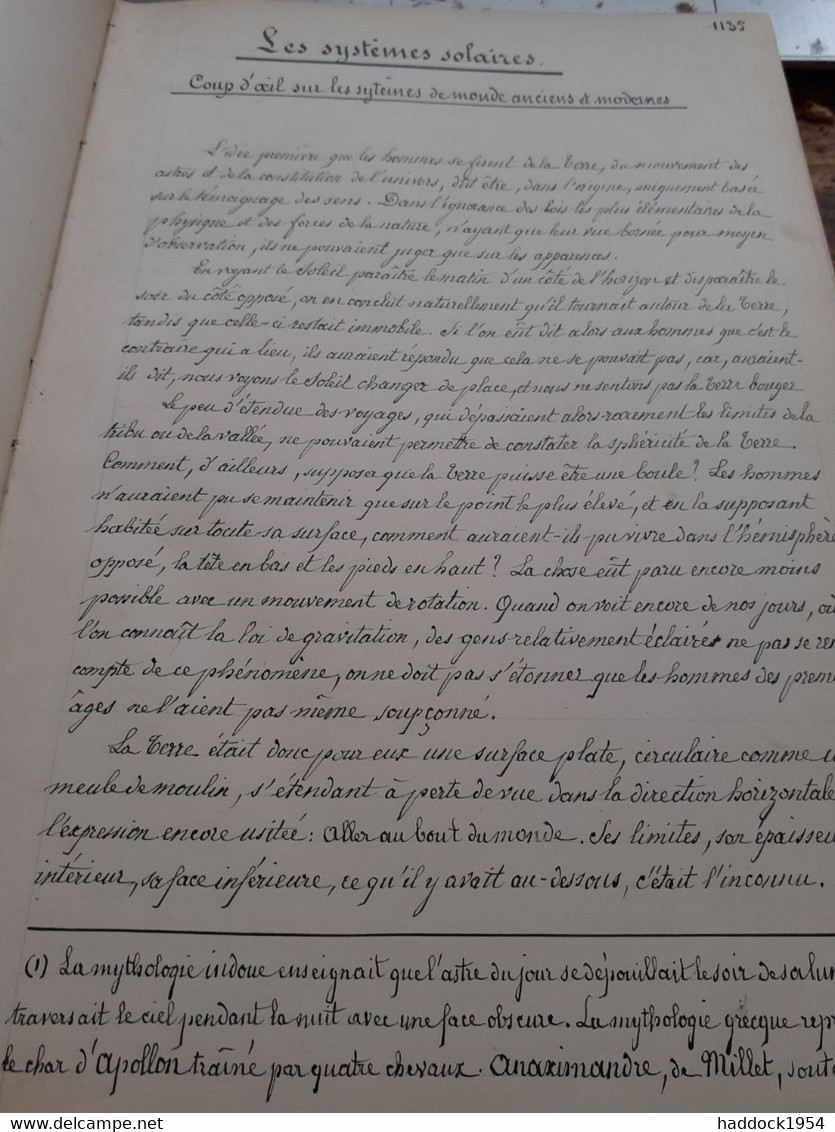 1135
Les systèmes solaires.
Coup d'œil sur les sytèmes de monde anciens et modernes
L'idée première que les hommes se firent de la Terre, du mouvement des
astres et de la constitution de l'univers, dût être, dans l'origine, uniquement basée
sur le témoignage des sens. Dans l'ignorance des lois les plus élémentaires de la
physique et des forces de la nature, n'ayant que leur vue bornée pour moyen
d'observation, ils ne pouvaient juger que sur les apparences.
En voyant le Soleil paraître le matin d'un côté de l'horizon et disparaître le
soir du côté opposé, on en conclut naturellement qu'il tournait autour de la Terre,
tandis que celle-ci restait immobile. Si l'on eût dit alors aux hommes que c'est le
contraire qui a lieu, ils auraient répondu que cela ne se pouvait pas, car, auraient-
ils dit, nous voyons le Soleil changer de place, et nous ne sentons pas la Terre bouger
Le peu d'étendue des voyages, qui dépassaient alors rarement les limites de la
tribu ou de la vallée, ne pouvaient permettre de constater la sphéricité de la Terre.
Comment, d'ailleurs, supposer que la Terre puisse être une boule? Les hommes
n'auraient pu se maintenir que sur le point le plus élevé, et en la supposant
habitée sur toute sa surface, comment auraient-ils pu vivre dans l'hémisphère
opposé, la tête en bas et les pieds en haut? La chose eût paru encore moins
possible avec un mouvement de rotation. Quand on voit encore de nos jours, où
l'on connaît la loi de gravitation, des gens relativement éclairés ne pas se ren
compte de ce phénomène, on ne doit pas s'étonner que les hommes des premi
âges ne l'aient pas même soupçonné.
La Terre était donc pour eux une surface plate, circulaire comme u
meule de moulin, s'étendant à perte de vue dans la direction horizontale
l'expression encore usitée: Aller au bout du monde. Ses limites, son épaisseu
intérieur, sa face inférieure, ce qu'il y avait au-dessous, c'était l'inconnu.
(1) La mythologie indoue enseignait que l'astre du jour se dépouillait le soir de sa lum
traversait le ciel pendant la nuit avec une face obscure. La mythologie grecque repr
le char d'Apollon traîné par quatre chevaux. Anaximandre, de Millet, sout
haddock1954